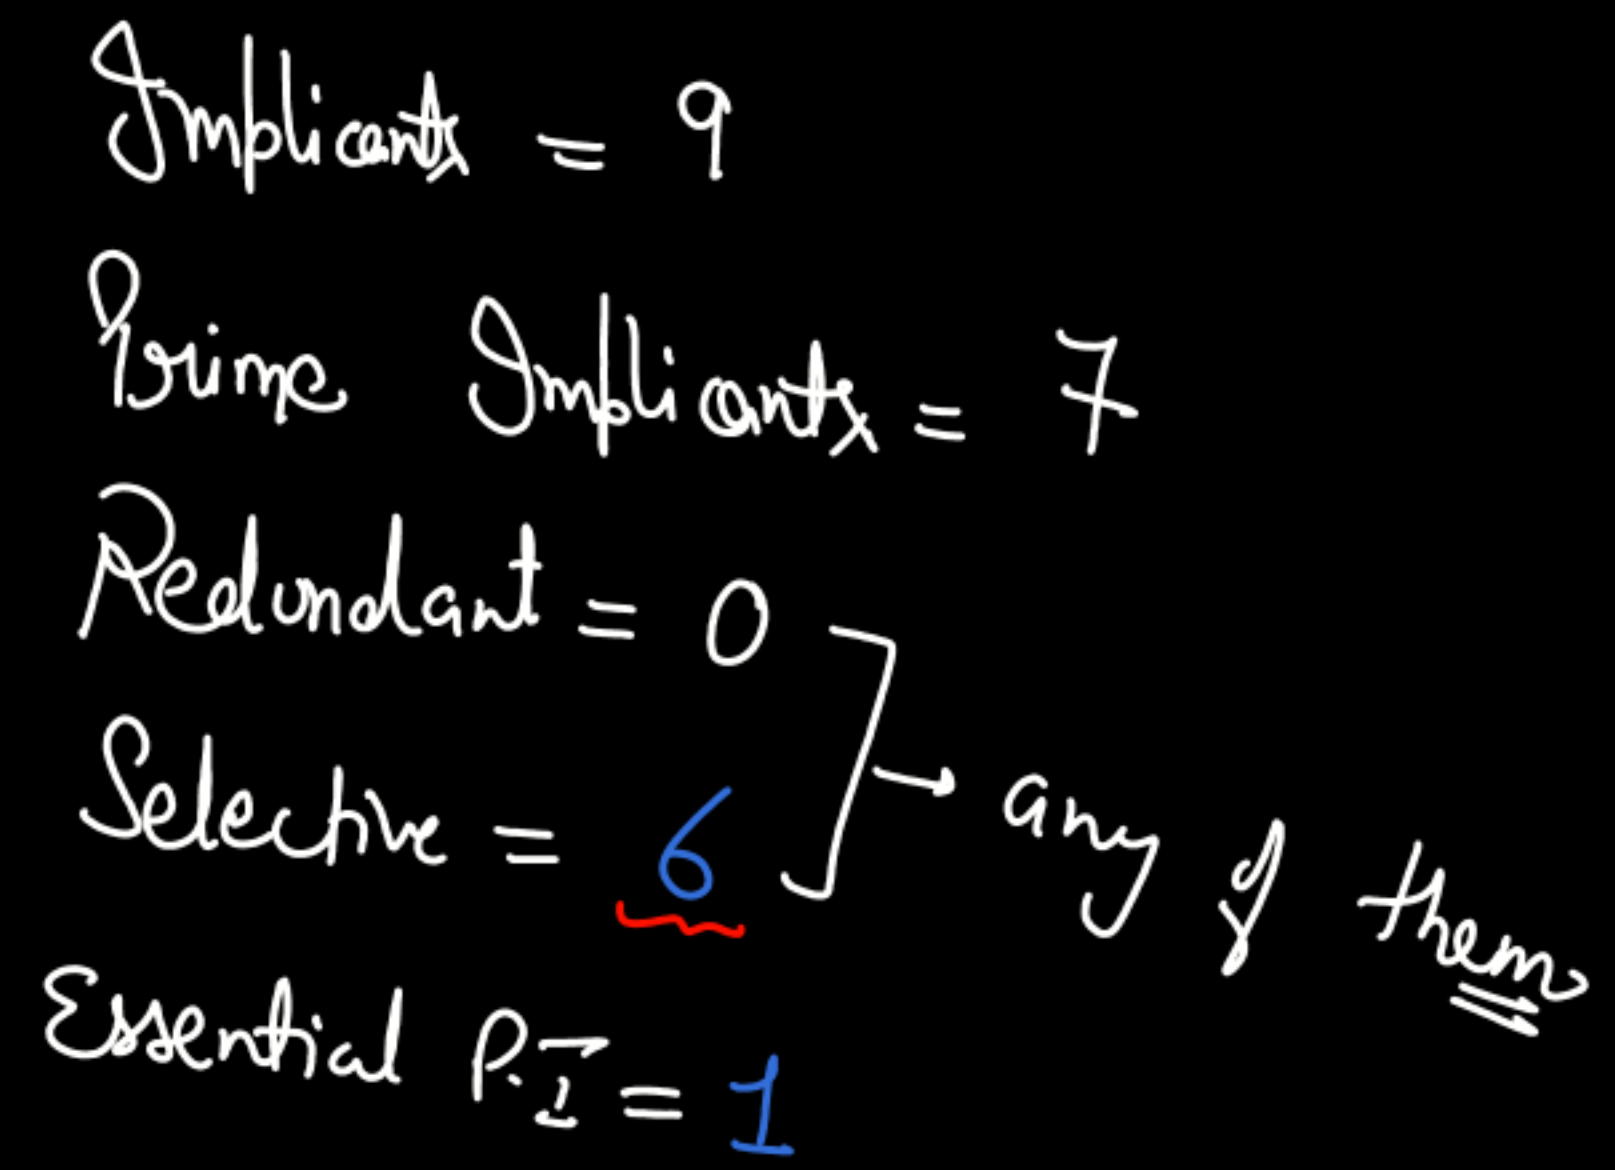 Implicants = 9
Prime Implicants = 7
Redundant = 0
Selective = 6
→ any of them
Essential P.I = 1